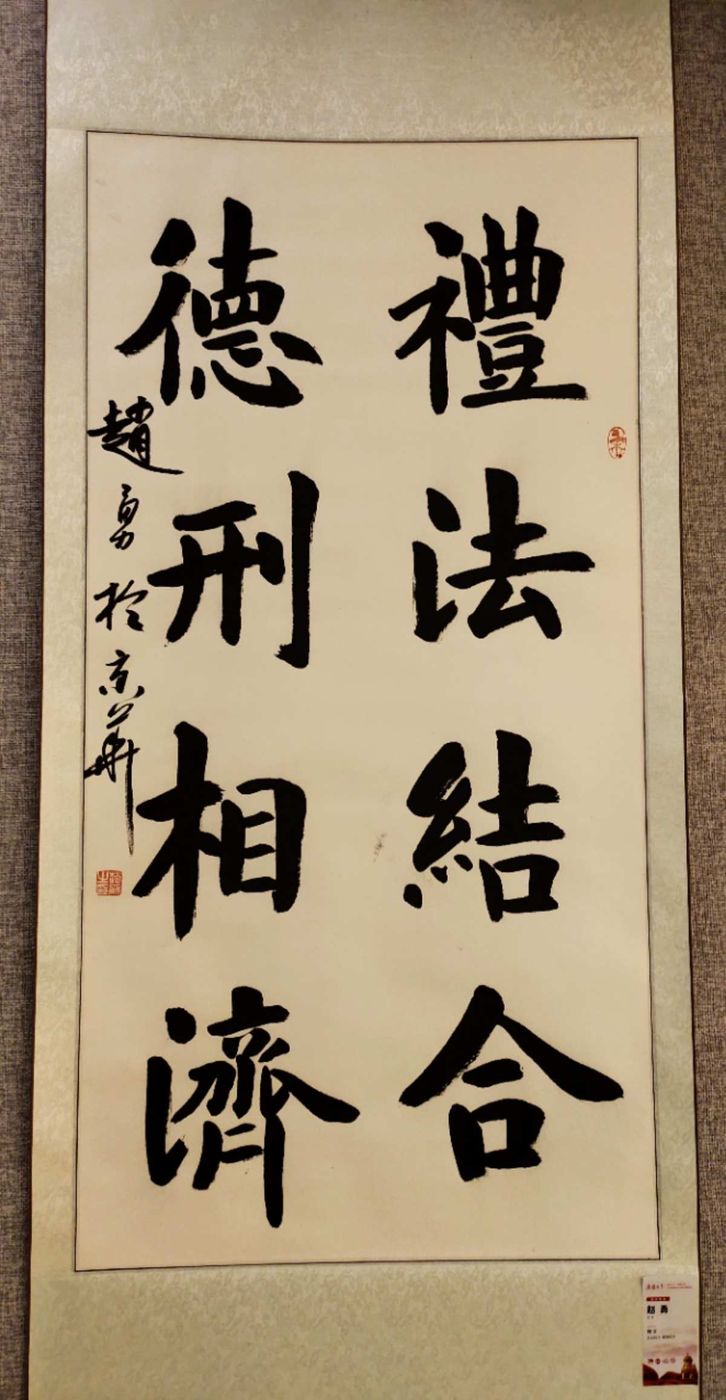 禮法結合
德刑相濟
趙勇於京華
赵勇